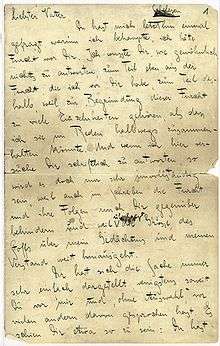 1
Liebster Vater
Du hast mich letzthin einmal
gefragt warum ich behaupte ich hätte
Furcht vor Dir. Ich wusste Dir wie gewöhnlich
nichts zu antworten zum Teil eben aus der
Furcht die ich vor Dir habe zum Teil des
halb weil zur Begründung dieser Furcht
zu viele Einzelnheiten gehören als dass
ich sie im Reden halbwegs zusammen
halten könnte. Und wenn ich hier ver
suche Dir schriftlich zu antworten so
wird es doch nur sehr unvollständig
sein weil auch im Schreiben die Furcht
und ihre Folgen mich Dir gegenüber
behindern und weil die Grösse des
Stoffs über mein Gedächtnis und meinen
Verstand weit hinausgeht.
Dir hat sich die Sache immer
sehr einfach dargestellt wenigstens soweit
Du vor mir und ohne Auswahl vor
vielen andern davon gesprochen hast. Es
schien Dir etwa so zu sein: Du hast